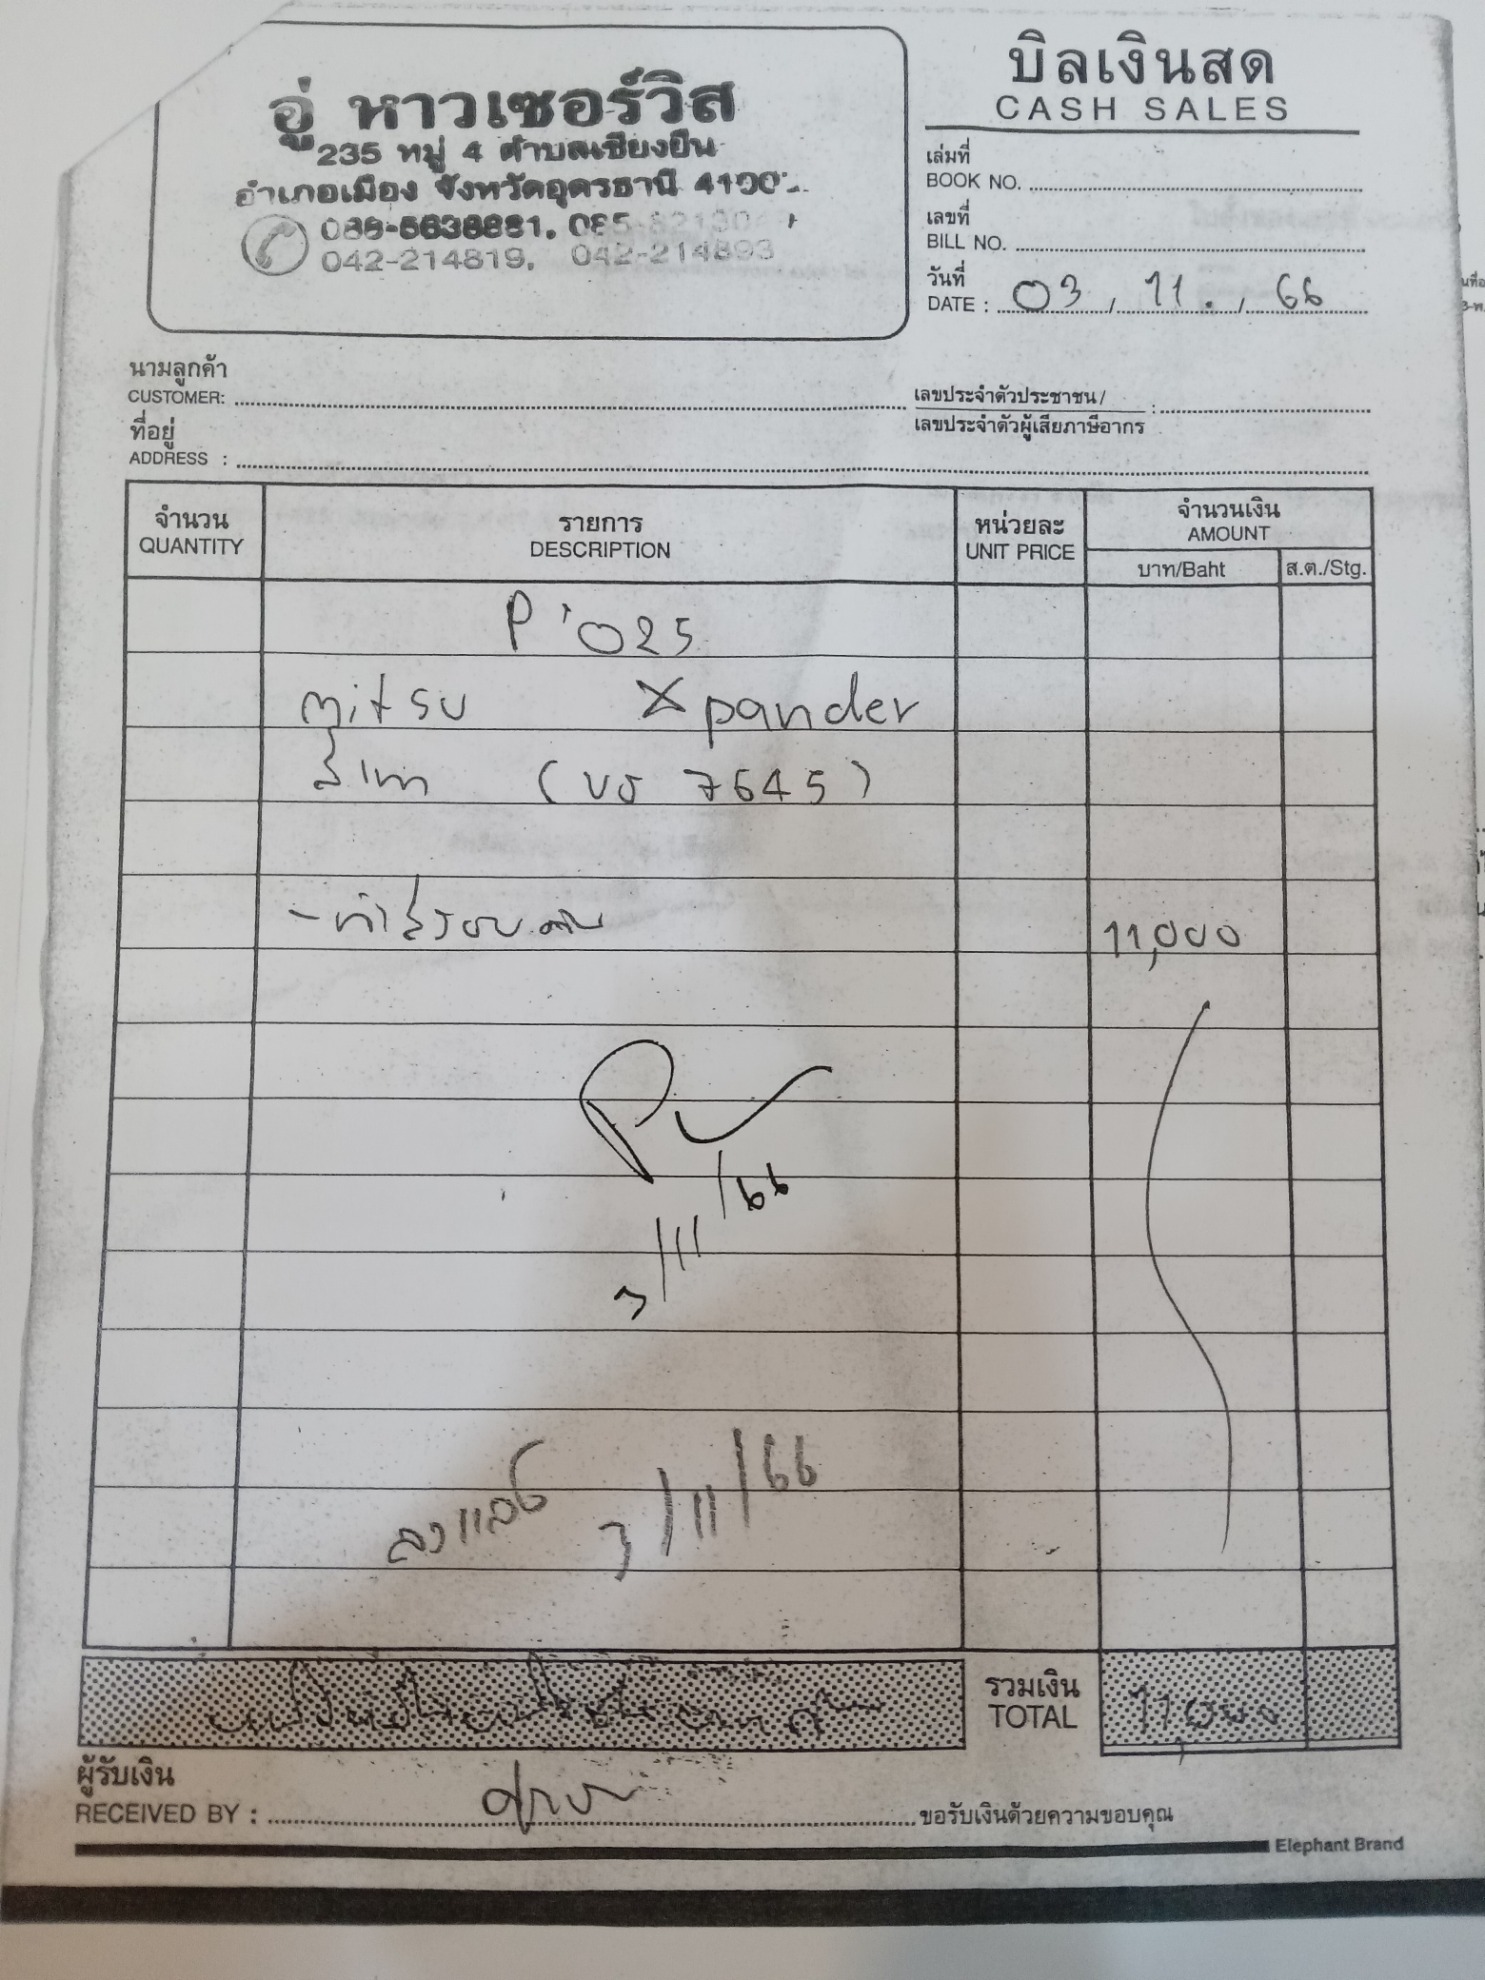 อู่ หาวเซอร์วิส
235 หมู่ 4 ตำบลเชียงยืน
อำเภอเมือง จังหวัดอุดรธานี
042-214819, 042-214893
บิลเงินสด
CASH SALES
เล่มที่
BOOK NO.
เลขที่
BILL NO.
วันที่
DATE : 03 / 11. / 66
นามลูกค้า
CUSTOMER:
เลขประจำตัวประชาชน/
เลขประจำตัวผู้เสียภาษีอากร :
ที่อยู่
ADDRESS :
จำนวน รายการ หน่วยละ จำนวนเงิน
QUANTITY DESCRIPTION UNIT PRICE AMOUNT
บาท/Baht ส.ต./Stg.
P'025
mitsu Xpander
สีเทา (ขร 7645)
-ทำสีรอบคัน 11,000
3/11/66
ลงแล้ว 3/11/66
รวมเงิน
TOTAL 11,000
ผู้รับเงิน
RECEIVED BY : ขอรับเงินด้วยความขอบคุณ
Elephant Brand